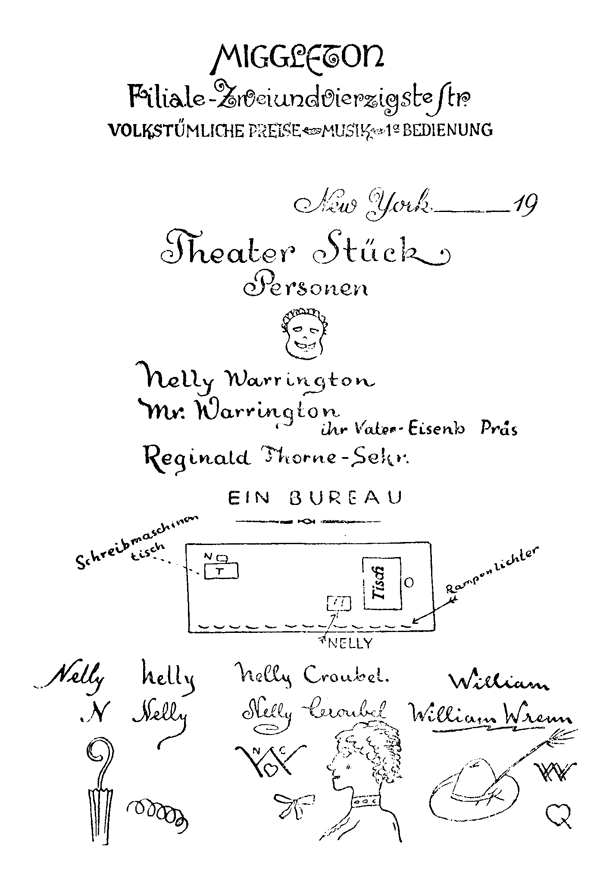 MIGGLETON
Filiale-Zweiundvierzigste Str.
VOLKSTÜMLICHE PREISE MUSIK 1a BEDIENUNG
New York 19
Theater Stück
Personen
Nelly Warrington
Mr. Warrington
ihr Vater-Eisenb Präs
Reginald Thorne-Sekr.
EIN BUREAU
Schreibmaschinen
tisch
N
T
Tisch
Rampenlichter
NELLY
Nelly Nelly Nelly Croubel. William
N Nelly Nelly Croubel William Wrenn
N C
W